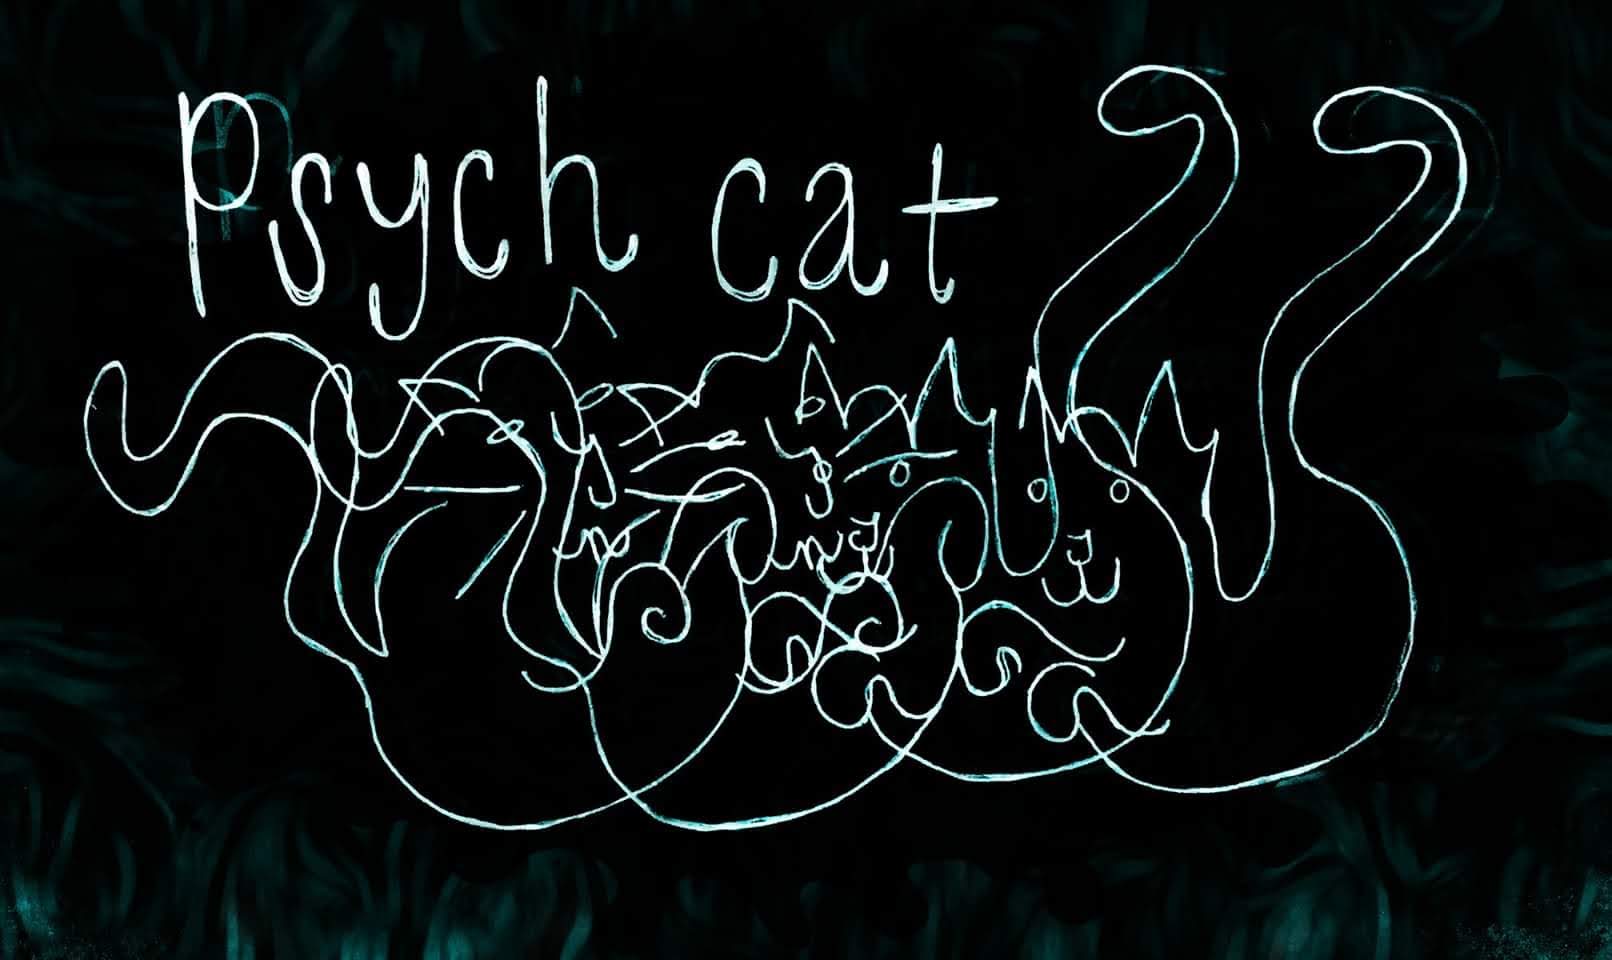 Psych cat